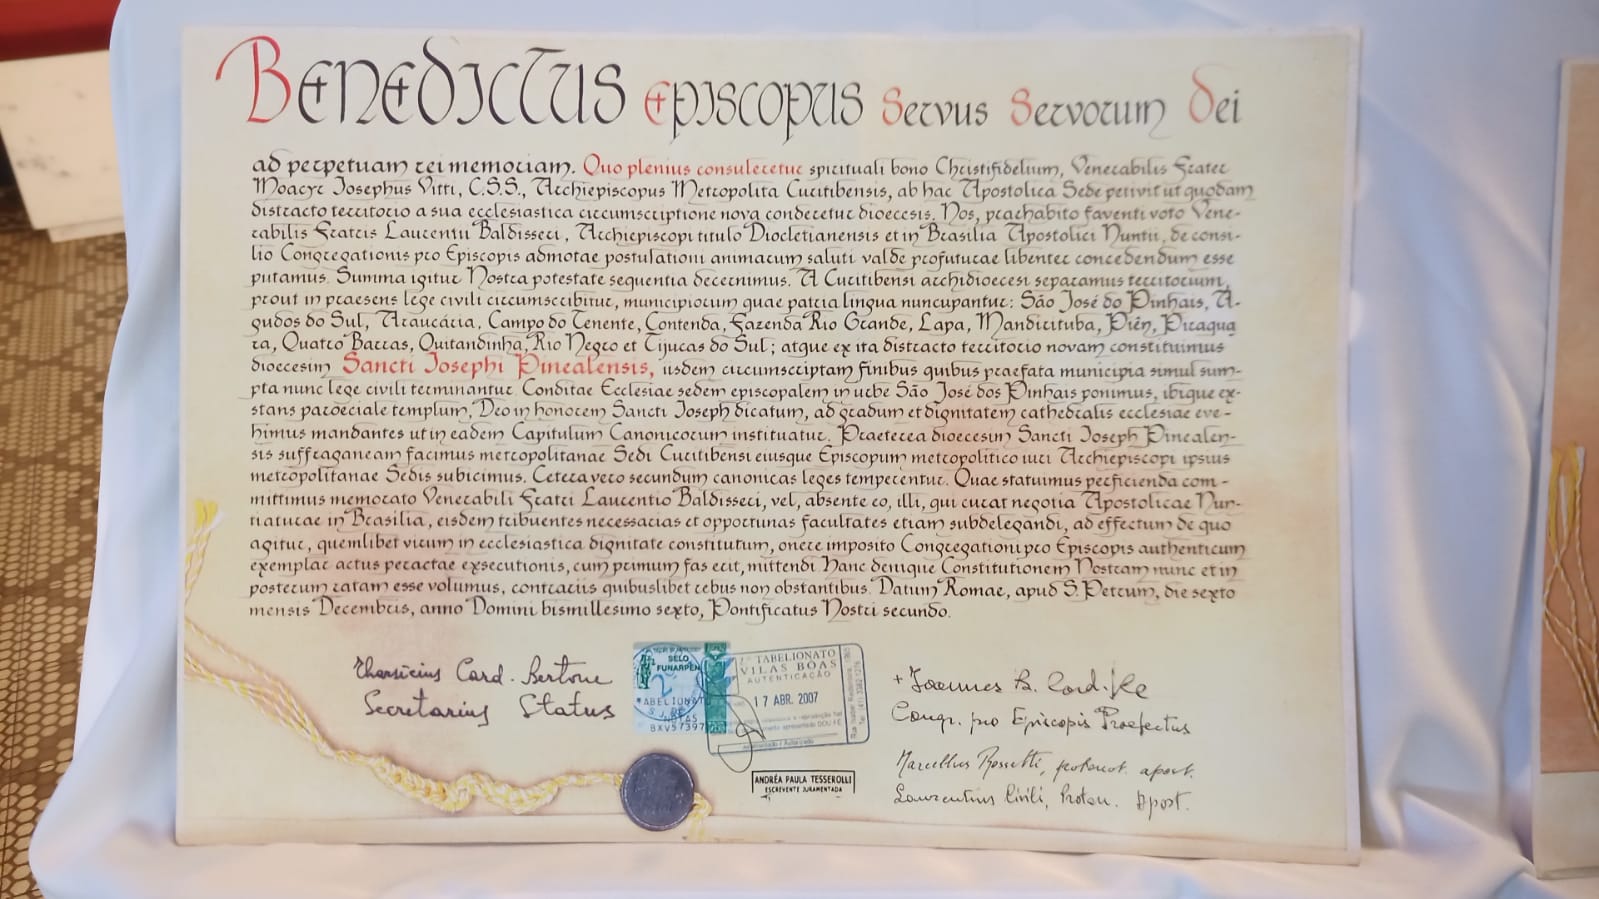 BENEDICTUS EPISCOPUS Servus Servorum Dei
ad perpetuam rei memoriam. Quo plenius consuleretur spirituali bono Christifidelium, Venerabilis Frater
Moacyr Iosephus Vitti, C.S.S., Archiepiscopus Metropolita Curitibensis, ab hac Apostolica Sede petivit ut quodam
distracto territorio a sua ecclesiastica circumscriptione nova conderetur dioecesis. Nos, praehabito faventi voto Vene-
rabilis Fratris Laurentii Baldisseri, Archiepiscopi titulo Diocletianensis et in Brasilia Apostolici Nuntii, de consi-
lio Congregationis pro Episcopis admotae postulationi animarum saluti valde profuturae libenter concedendum esse
putamus. Summa igitur Nostra potestate sequentia decernimus. A Curitibensi archidioecesi separamus territorium,
prout in praesens lege civili circumscribitur, municipiorum quae patria lingua nuncupantur: São José do Pinhais, A-
gudos do Sul, Araucária, Campo do Tenente, Contenda, Fazenda Rio Grande, Lapa, Mandirituba, Piên, Piraqua
ra, Quatro Barras, Quitandinha, Rio Negro et Tijucas do Sul; atque ex ita distracto territorio novam constituimus
dioecesim Sancti Iosephi Pinealensis, iisdem circumscriptam finibus quibus praefata municipia simul sum-
pta nunc lege civili terminantur. Conditae Ecclesiae sedem episcopalem in urbe São José dos Pinhais ponimus, ibique ex-
stans paroeciale templum, Deo in honorem Sancti Ioseph dicatum, ad gradum et dignitatem cathedralis ecclesiae eve-
himus mandantes ut in eadem Capitulum Canonicorum instituatur. Praeterea dioecesim Sancti Ioseph Pinealen-
sis suffraganeam facimus metropolitanae Sedi Curitibensi eiusque Episcopum metropolitico iuri Archiepiscopi ipsius
metropolitanae Sedis subicimus. Cetera vero secundum canonicas leges temperentur. Quae statuimus perficienda com-
mittimus memorato Venerabili Fratri Laurentio Baldisseri, vel, absente eo, illi, qui curat negotia Apostolicae Nun-
tiaturae in Brasilia, eisdem tribuentes necessarias et opportunas facultates etiam subdelegandi, ad effectum de quo
agitur, quemlibet virum in ecclesiastica dignitate constitutum, onere imposito Congregationi pro Episcopis authenticum
exemplar actus peractae exsecutionis, cum primum fas erit, mittendi. Hanc denique Constitutionem Nostram nunc et in
posterum ratam esse volumus, contrariis quibuslibet rebus non obstantibus. Datum Romae, apud S. Petrum, die sexto
mensis Decembris, anno Domini bismillesimo sexto, Pontificatus Nostri secundo.
Tharsicius Card. Bertone
Secretarius Status
SELO
FUNARPEN
TABELIONATO
VILAS BOAS
AUTENTICAÇÃO
17 ABR. 2007
ANDRÉA PAULA TESSEROLLI
ESCREVENTE JURAMENTADA
+ Joannes B. Card. Re
Congr. pro Episcopis Praefectus
Marcellus Rossetti, protonot. apost.
Laurentius Civili, Proton. Apost.